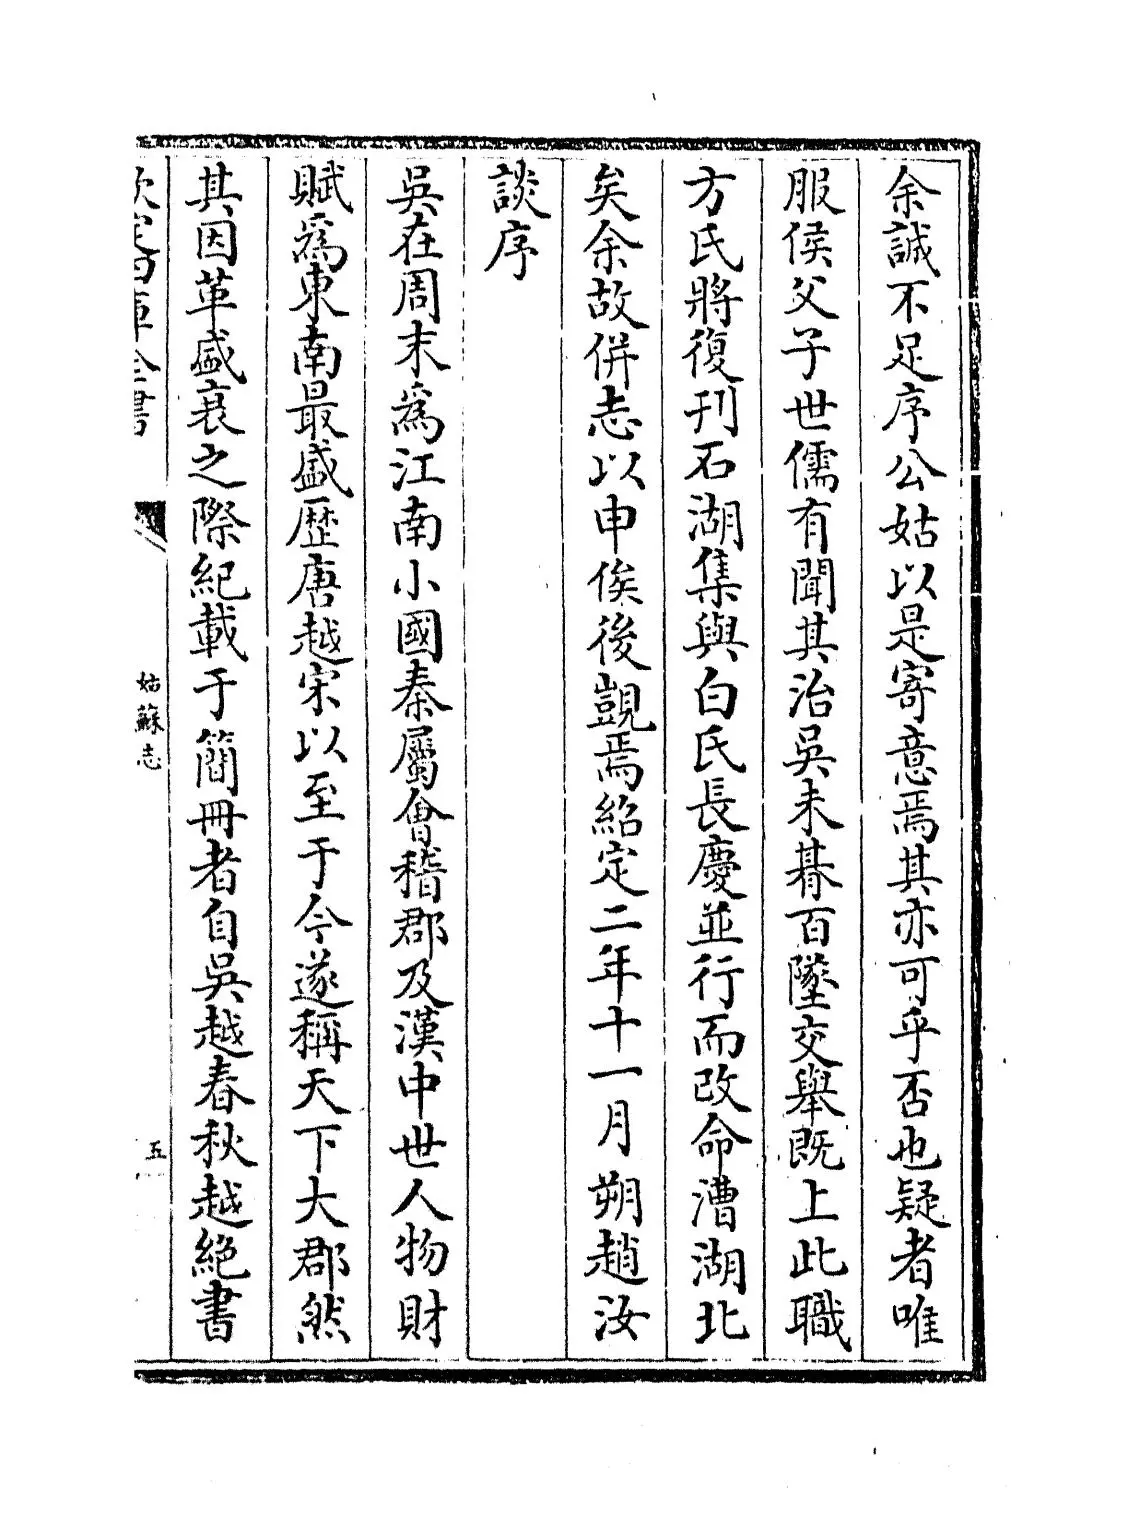 余誠不足序公姑以是寄意焉其亦可乎否也疑者唯
服侯父子世儒有聞其治吳未朞百墜交舉既上此職
方氏將復刊石湖集與白氏長慶並行而改命漕湖北
矣余故併志以申俟後覬焉紹定二年十一月朔趙汝
談序
吳在周末為江南小國秦屬會稽郡及漢中世人物財
賦為東南最盛歷唐越宋以至于今遂稱天下大郡然
其因革盛衰之際紀載于簡冊者自吳越春秋越絕書
欽定四庫全書
姑蘇志
五